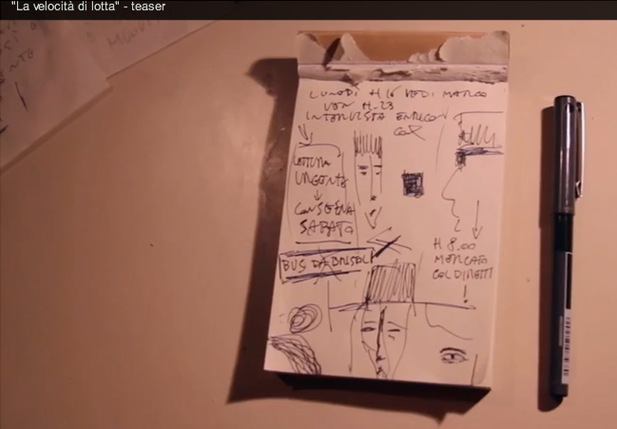 "La velocità di lotta" - teaser
LUNEDÌ H 16 VEDI MARCO
VEN H.23
INTERVISTA ENRICO
URGENTE
CONSEGNA
SABATO
BUS DA
H 8.00
MERCATO
COLDIRETTI